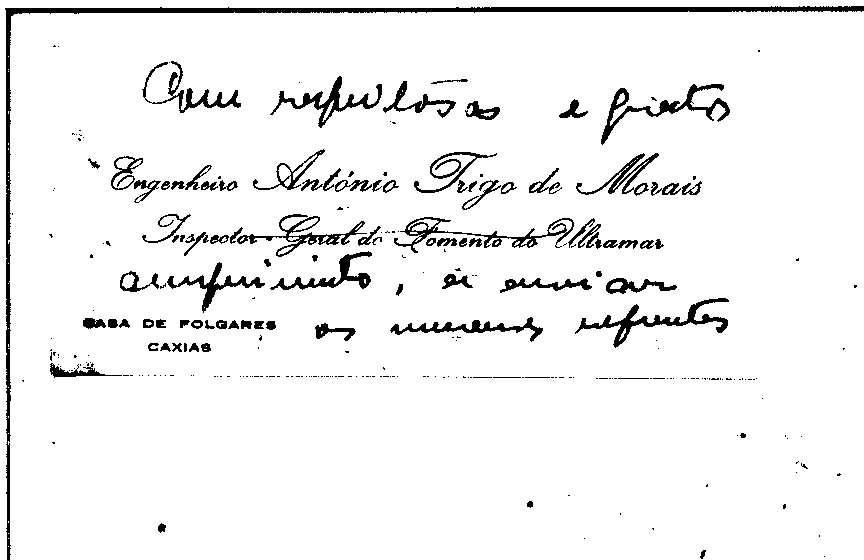 Com respeitosas e gratos
Engenheiro António Trigo de Morais
Inspector Geral do Fomento do Ultramar
cumprimentos, enviar
CASA DE FOLGARES
os refrentes
CAXIAS